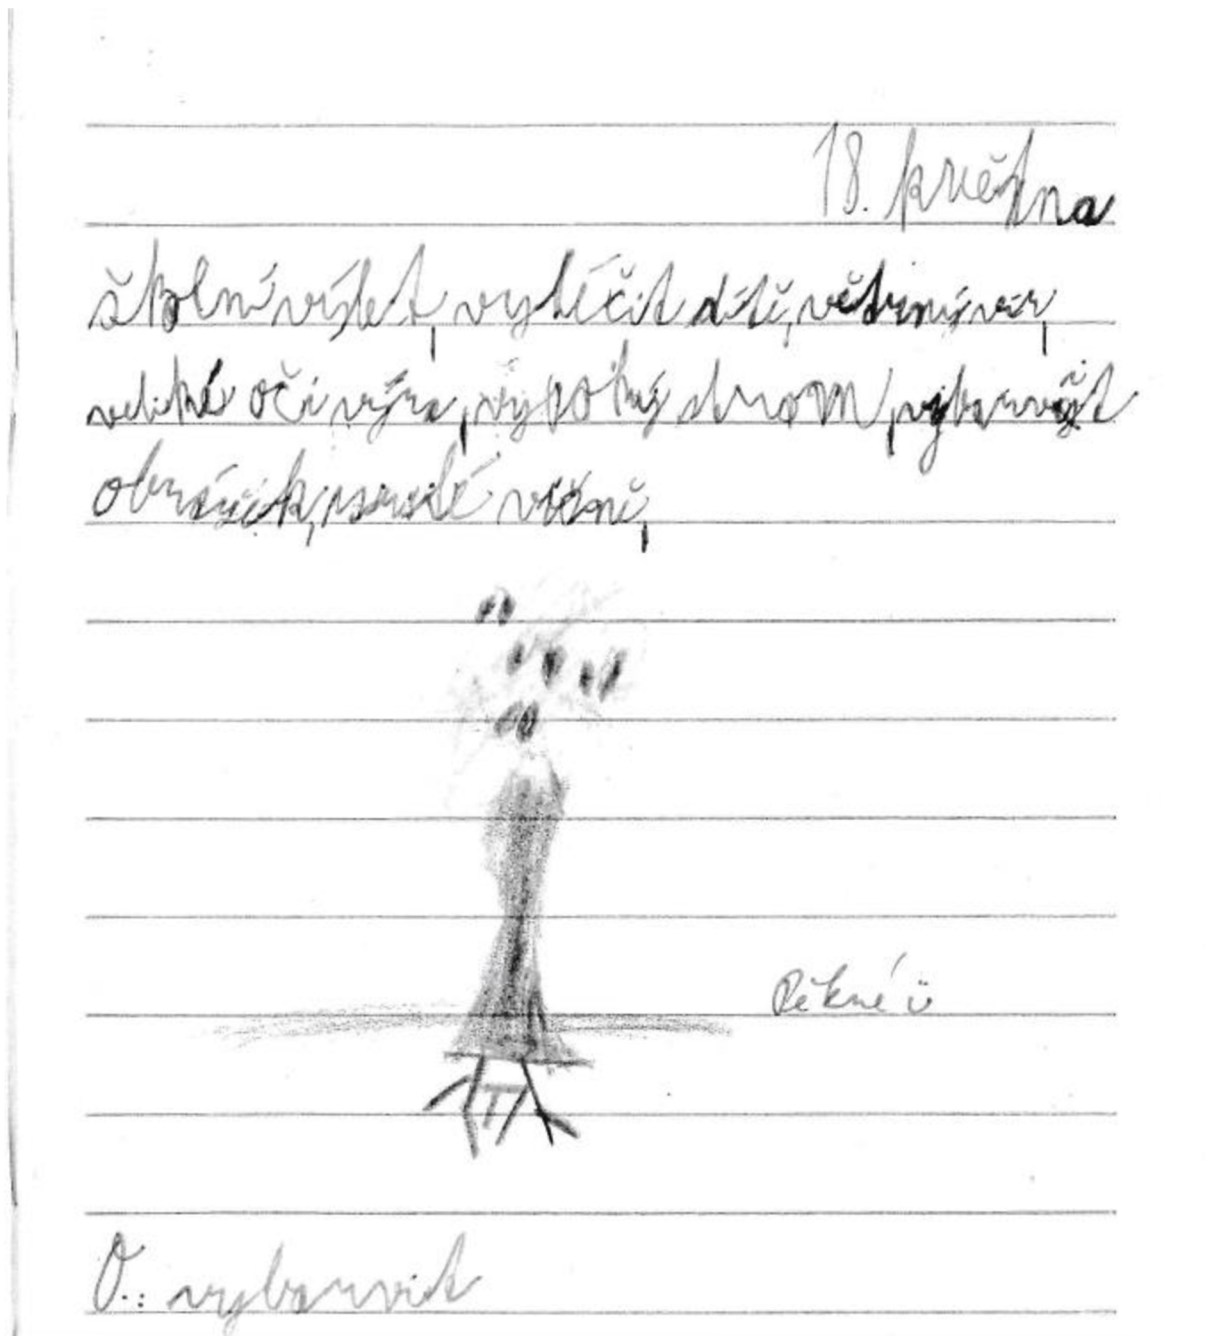 18. května
školní výlet, vyléčit dítě, větrný vír,
velké oči výra, vysoký strom, vybarvit
obrázek, zralé višně,
Pěkné ü
O.: vybarvit